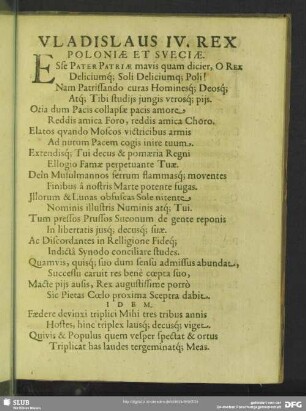 VLADISLAUS IV. REX
POLONIÆ ET SVECIÆ.
ESſe PATER PATRIÆ mavis quam dicier, O REX
Deliciumq; Soli Deliciumq; Poli!
Nam Patriſſando curas Hominesq; Deosq;
Atq; Tibi ſtudijs jungis verosq; pijs.
Otia dum Pacis collapſæ pacis amore
Reddis amica Foro, reddis amica Chôro.
Elatos qvando Moſcos victricibus armis
Ad notum Pacem cogis inire tuum.
Extendisq; Tui decus & pomæria Regni
Ellogio Famæ perpetuante Tuæ.
Dein Muſulmannos ferrum flammasq; moventes
Finibus â noſtris Marte potente fugas.
Jllorum & Lunas obfuſcas Sole nitente
Nominis illuſtris Nominis atq; Tui.
Tum preſſos Pruſſos Sueonum de gente reponis
In libertatis jusq; decusq; ſuæ.
Ac Discordantes in Relligione Fideq;
Indictâ Synodo conciliare ſtudes.
Quamvis, quisq; ſuo dum ſenſu admiſſus abundat,
Succeſſu caruit res benè cœpta ſuo,
Macte pijs auſis, Rex auguſtiſſime porrò
Sic Pietas Cœlo proxima Sceptra dabit.
IDEM.
Fœdere devinxi triplici Mihi tres tribus annis
Hoſtes, hinc triplex lausq; decusq; viget.
Quivis & Populus quem veſper ſpectat & ortus
Triplicat has laudes tergeminatq; Meas.
SLUB
DFG